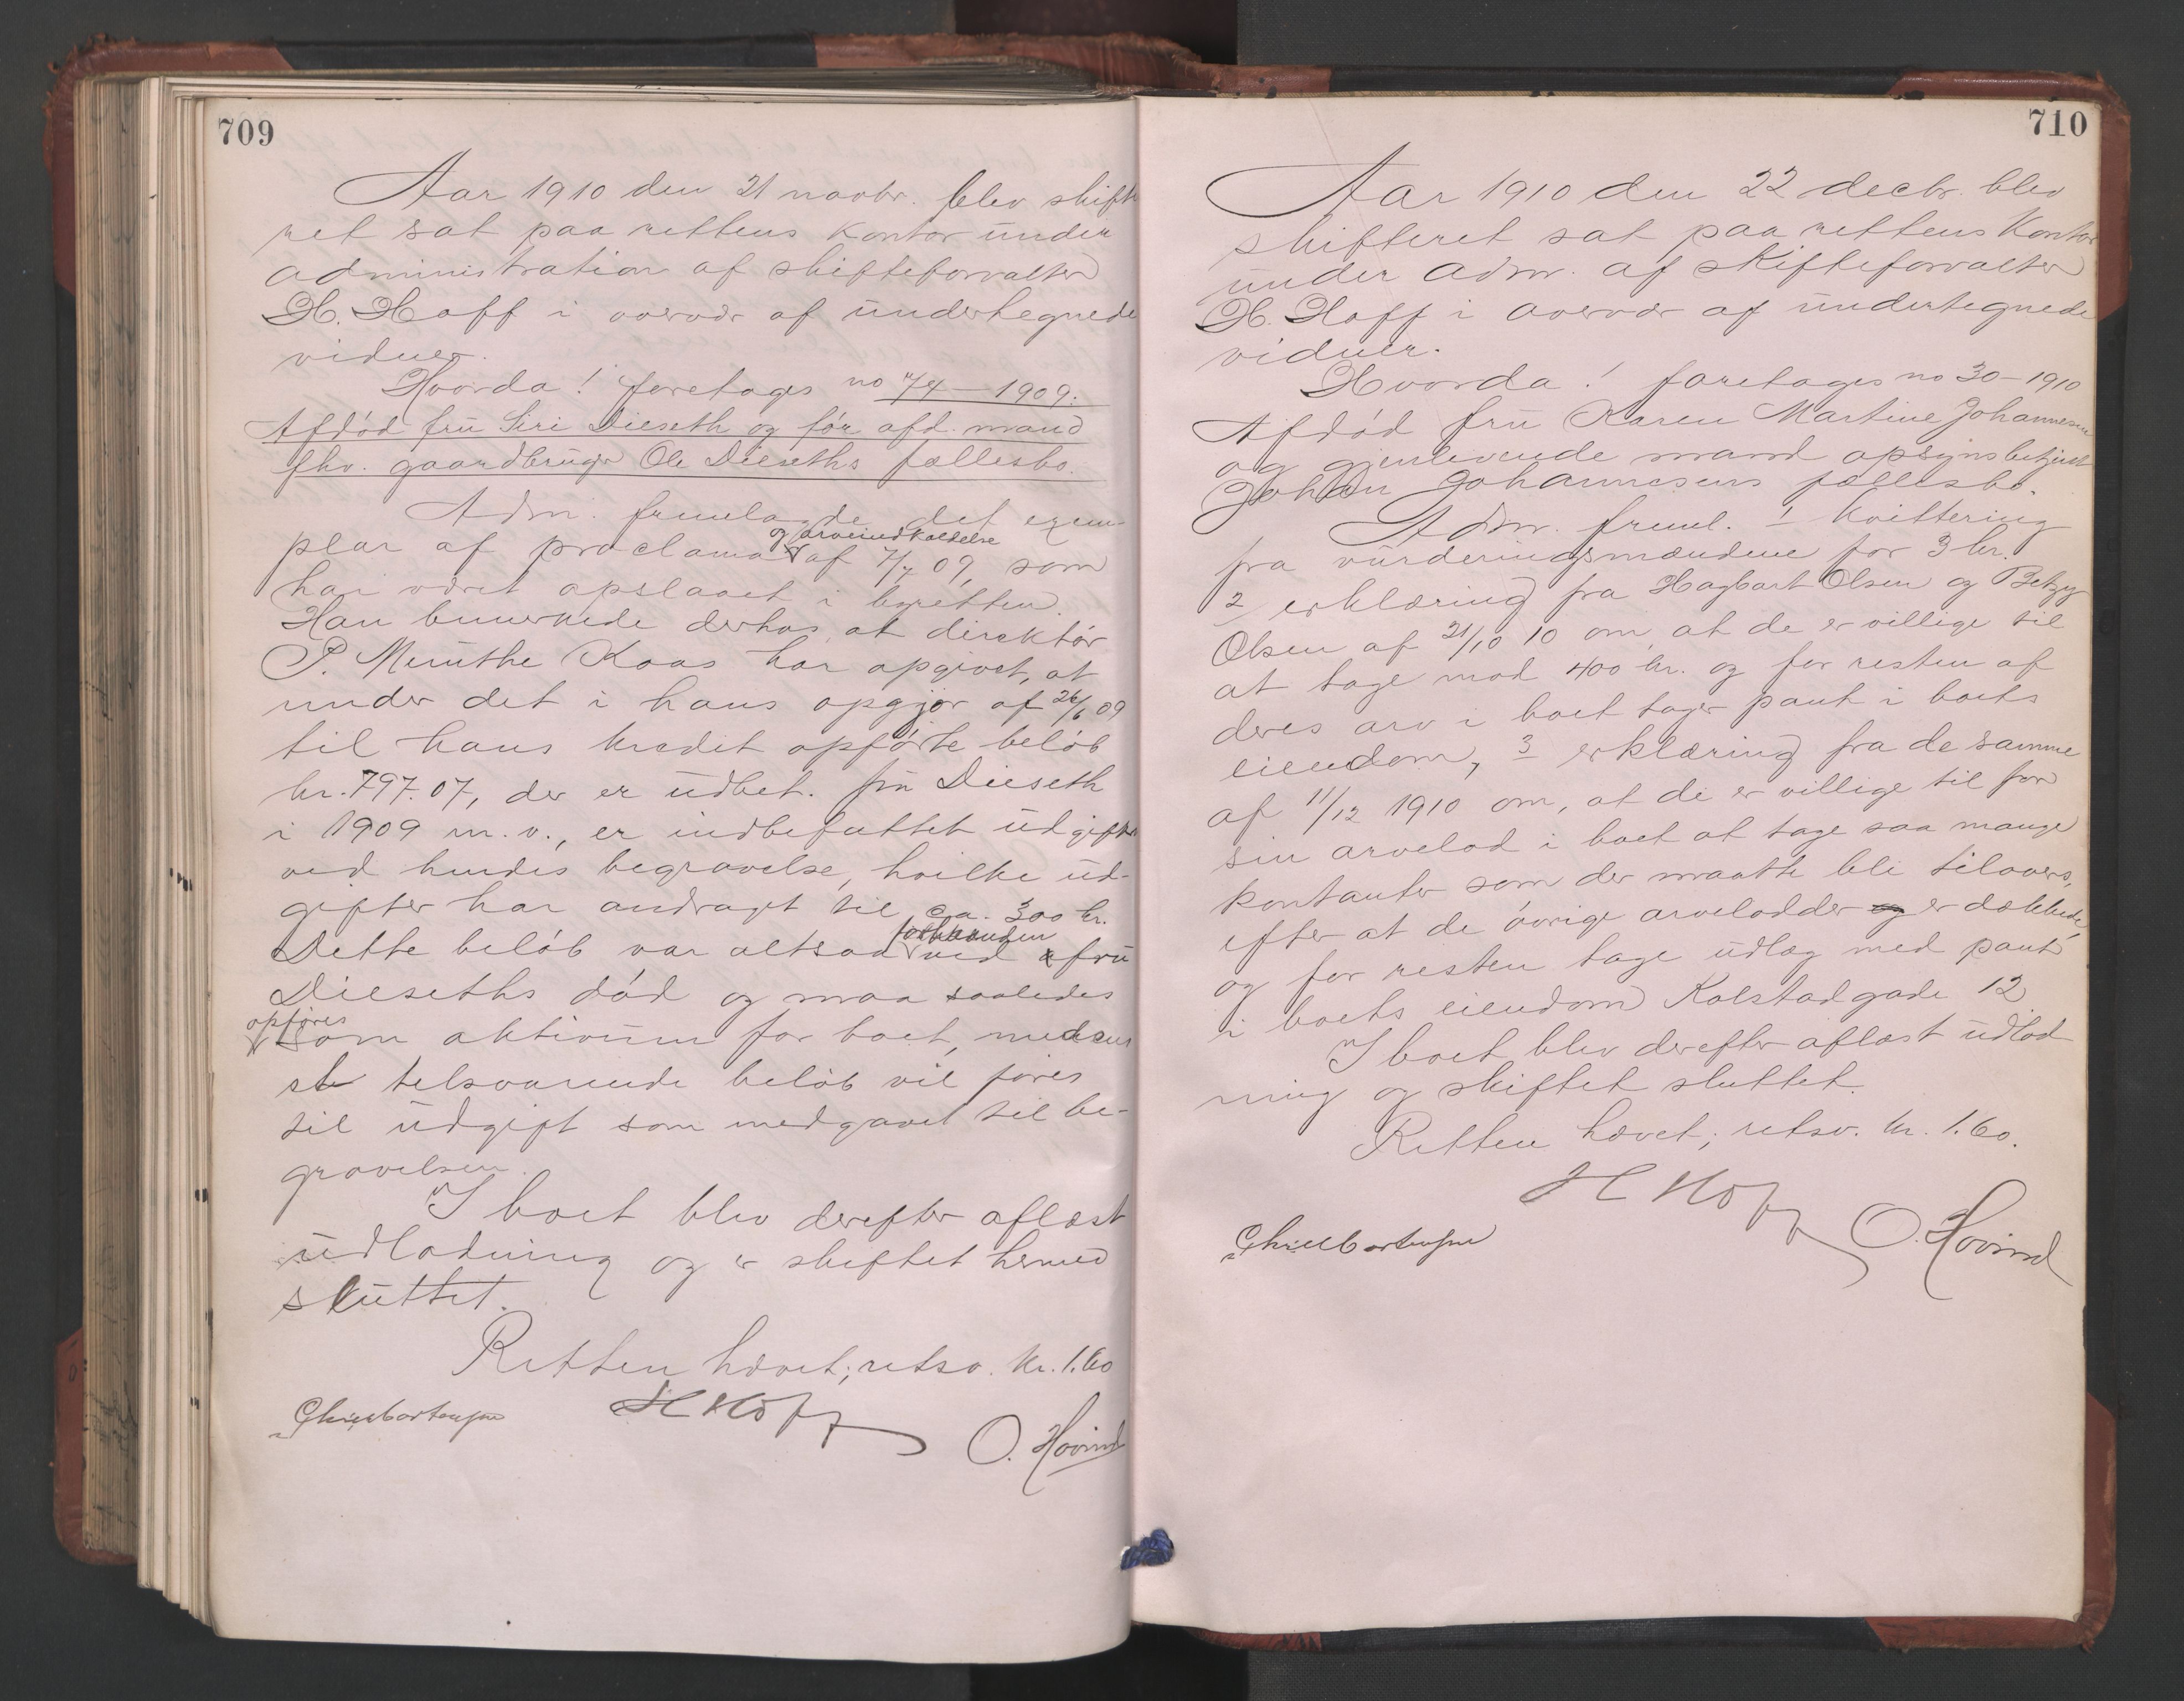 709
Aar 1910 den 21 novbr. blev skifte
ret sat paa rettens kontor under
administration af skifteforvalter
H. Hoff i overvær af undertegnede
vidner.
Hvorda! foretages no 74 – 1909.
Afdød fru Siri Dieseth og før afd. mand
fhv. gaardbruger Ole Dieseths fællesbo.
Adm. fremlagde det exem-
plar af proclama og arveindkaldelse af 7/7 09, som
har været opslaaet i byretten.
Han bemerkede derhos, at direktør
P. Munthe Kaas har opgivet, at
under det i hans opgjør af 26/6 09
til hans kredit opførte beløb
kr. 797.07, der er udbet. fru Dieseth
i 1909 m. v., er indbefattet udgifter
ved hendes begravelse, hvilke ud-
gifter har andraget til ca. 300 kr.
Dette beløb var altsaa forhaanden ved fru
Dieseths død og maa saaledes
opføres som aktivum for boet, medens
et tilsvarende beløb vil føres
til udgift som medgaaet til be-
gravelsen.
I boet blev derefter aflæst
udlodning og er skiftet hermed
sluttet.
Retten hævet; retsv. kr. 1.60
H Hoff
O. Hovind
710
Aar 1910 den 22 decbr. blev
skifteret sat paa rettens kontor
under adm. af skifteforvalter
H. Hoff i overvær af undertegnede
vidner.
Hvorda! foretages no 30 – 1910
Afdød fru Karen Martine Johannesen
og gjenlevende mand opsynsbetjent
Johan Johannesens fællesbo.
Adm. freml. 1 kvittering
fra vurderingsmændene for 3 kr.
2 erklæring fra Hagbart Olsen og Betzy
Olsen af 21/10 10 om, at de er villige til
at tage mod 400 kr. og for resten af
deres arv i boet tager pant i boets
eiendom, 3 erklæring fra de samme
af 11/12 1910 om, at de er villige til for
sin arvelod i boet at tage saa mange
kontanter som der maatte bli tilovers,
efter at de øvrige arvelodder er dækkede,
og for resten tage udlæg med pant
i boets eiendom Kolstadgade 12
I boet blev derefter aflæst udlod
ning og skiftet sluttet.
Retten hævet; retsv. kr. 1.60.
H Hoff
O. Hovind